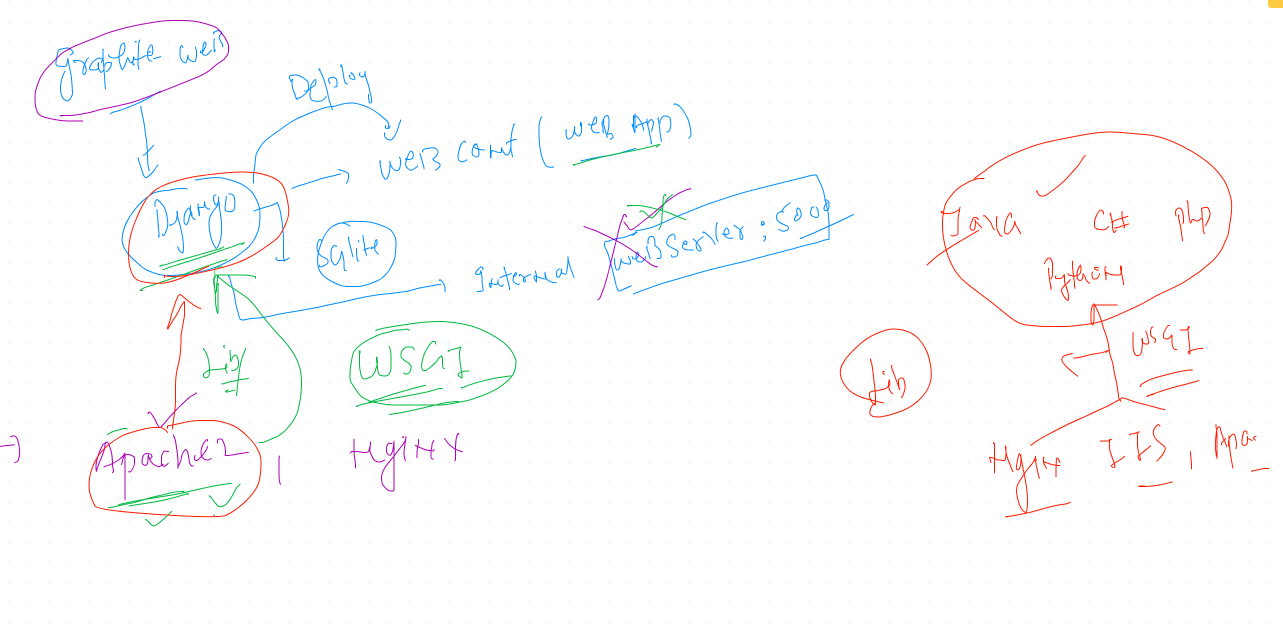 Graphite web
Deploy
WEB cont (WEB App)
Django
Sqlite
Internal
WEBServer : 5000
Lib
WSGI
Apache2 | Nginx
Java C# php
Python
WSGI
Lib
Nginx IIS, Apa